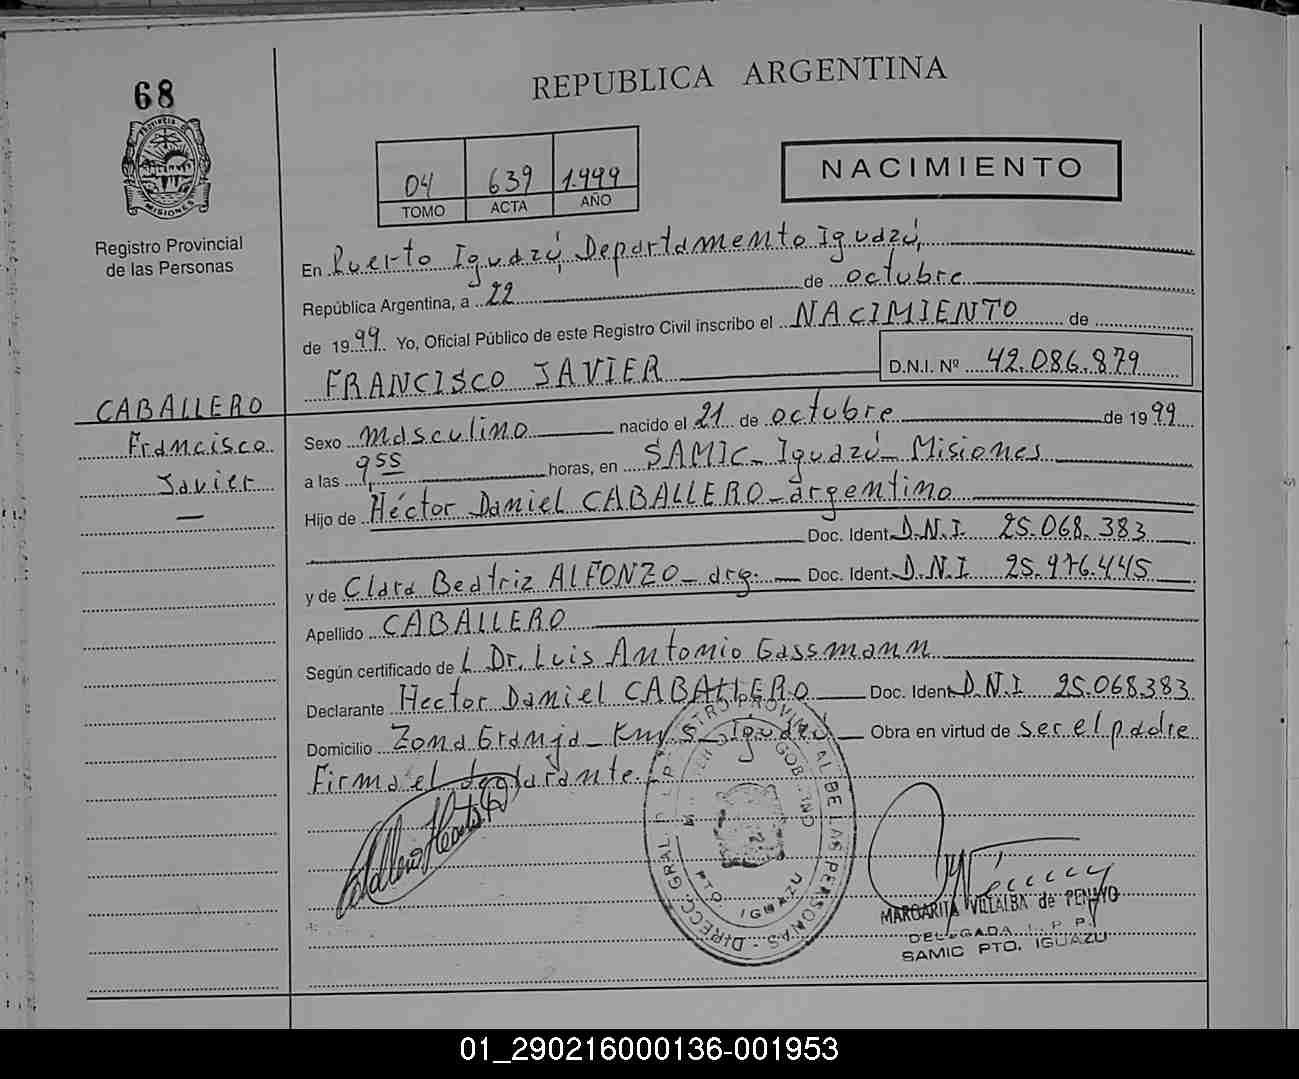 68
REPUBLICA ARGENTINA
Provincia de
MISIONES
Registro Provincial
de las Personas
04 639 1.999
TOMO ACTA AÑO
NACIMIENTO
En Puerto Iguazú, Departamento Iguazú,
República Argentina, a 22 de octubre
de 1999 Yo, Oficial Público de este Registro Civil inscribo el NACIMIENTO de
FRANCISCO JAVIER D.N.I. Nº 42.086.879
CABALLERO
Francisco
Javier
Sexo masculino nacido el 21 de octubre de 1999
a las 9,55 horas, en SAMIC_ Iguazú_ Misiones
Hijo de Héctor Daniel CABALLERO_argentino
Doc. Ident. D.N.I. 25.068.383
y de Clara Beatriz ALFONZO_arg. Doc. Ident. D.N.I 25.976.445
Apellido CABALLERO
Según certificado de L Dr. Luis Antonio Gassmann
Declarante Hector Daniel CABALLERO Doc. Ident D.N.I 25.068.383
Domicilio Zona Granja_ Km 5_ Iguazú Obra en virtud de ser el padre
Firma el declarante._
DIRECC. GRAL. REGISTRO PROVINCIAL DE LAS PERSONAS
GOBIERNO
PTO. IGUAZU
MARGARITA VILLALBA de PENAYO
DELEGADA R. P. P.
SAMIC PTO. IGUAZU
01_290216000136-001953